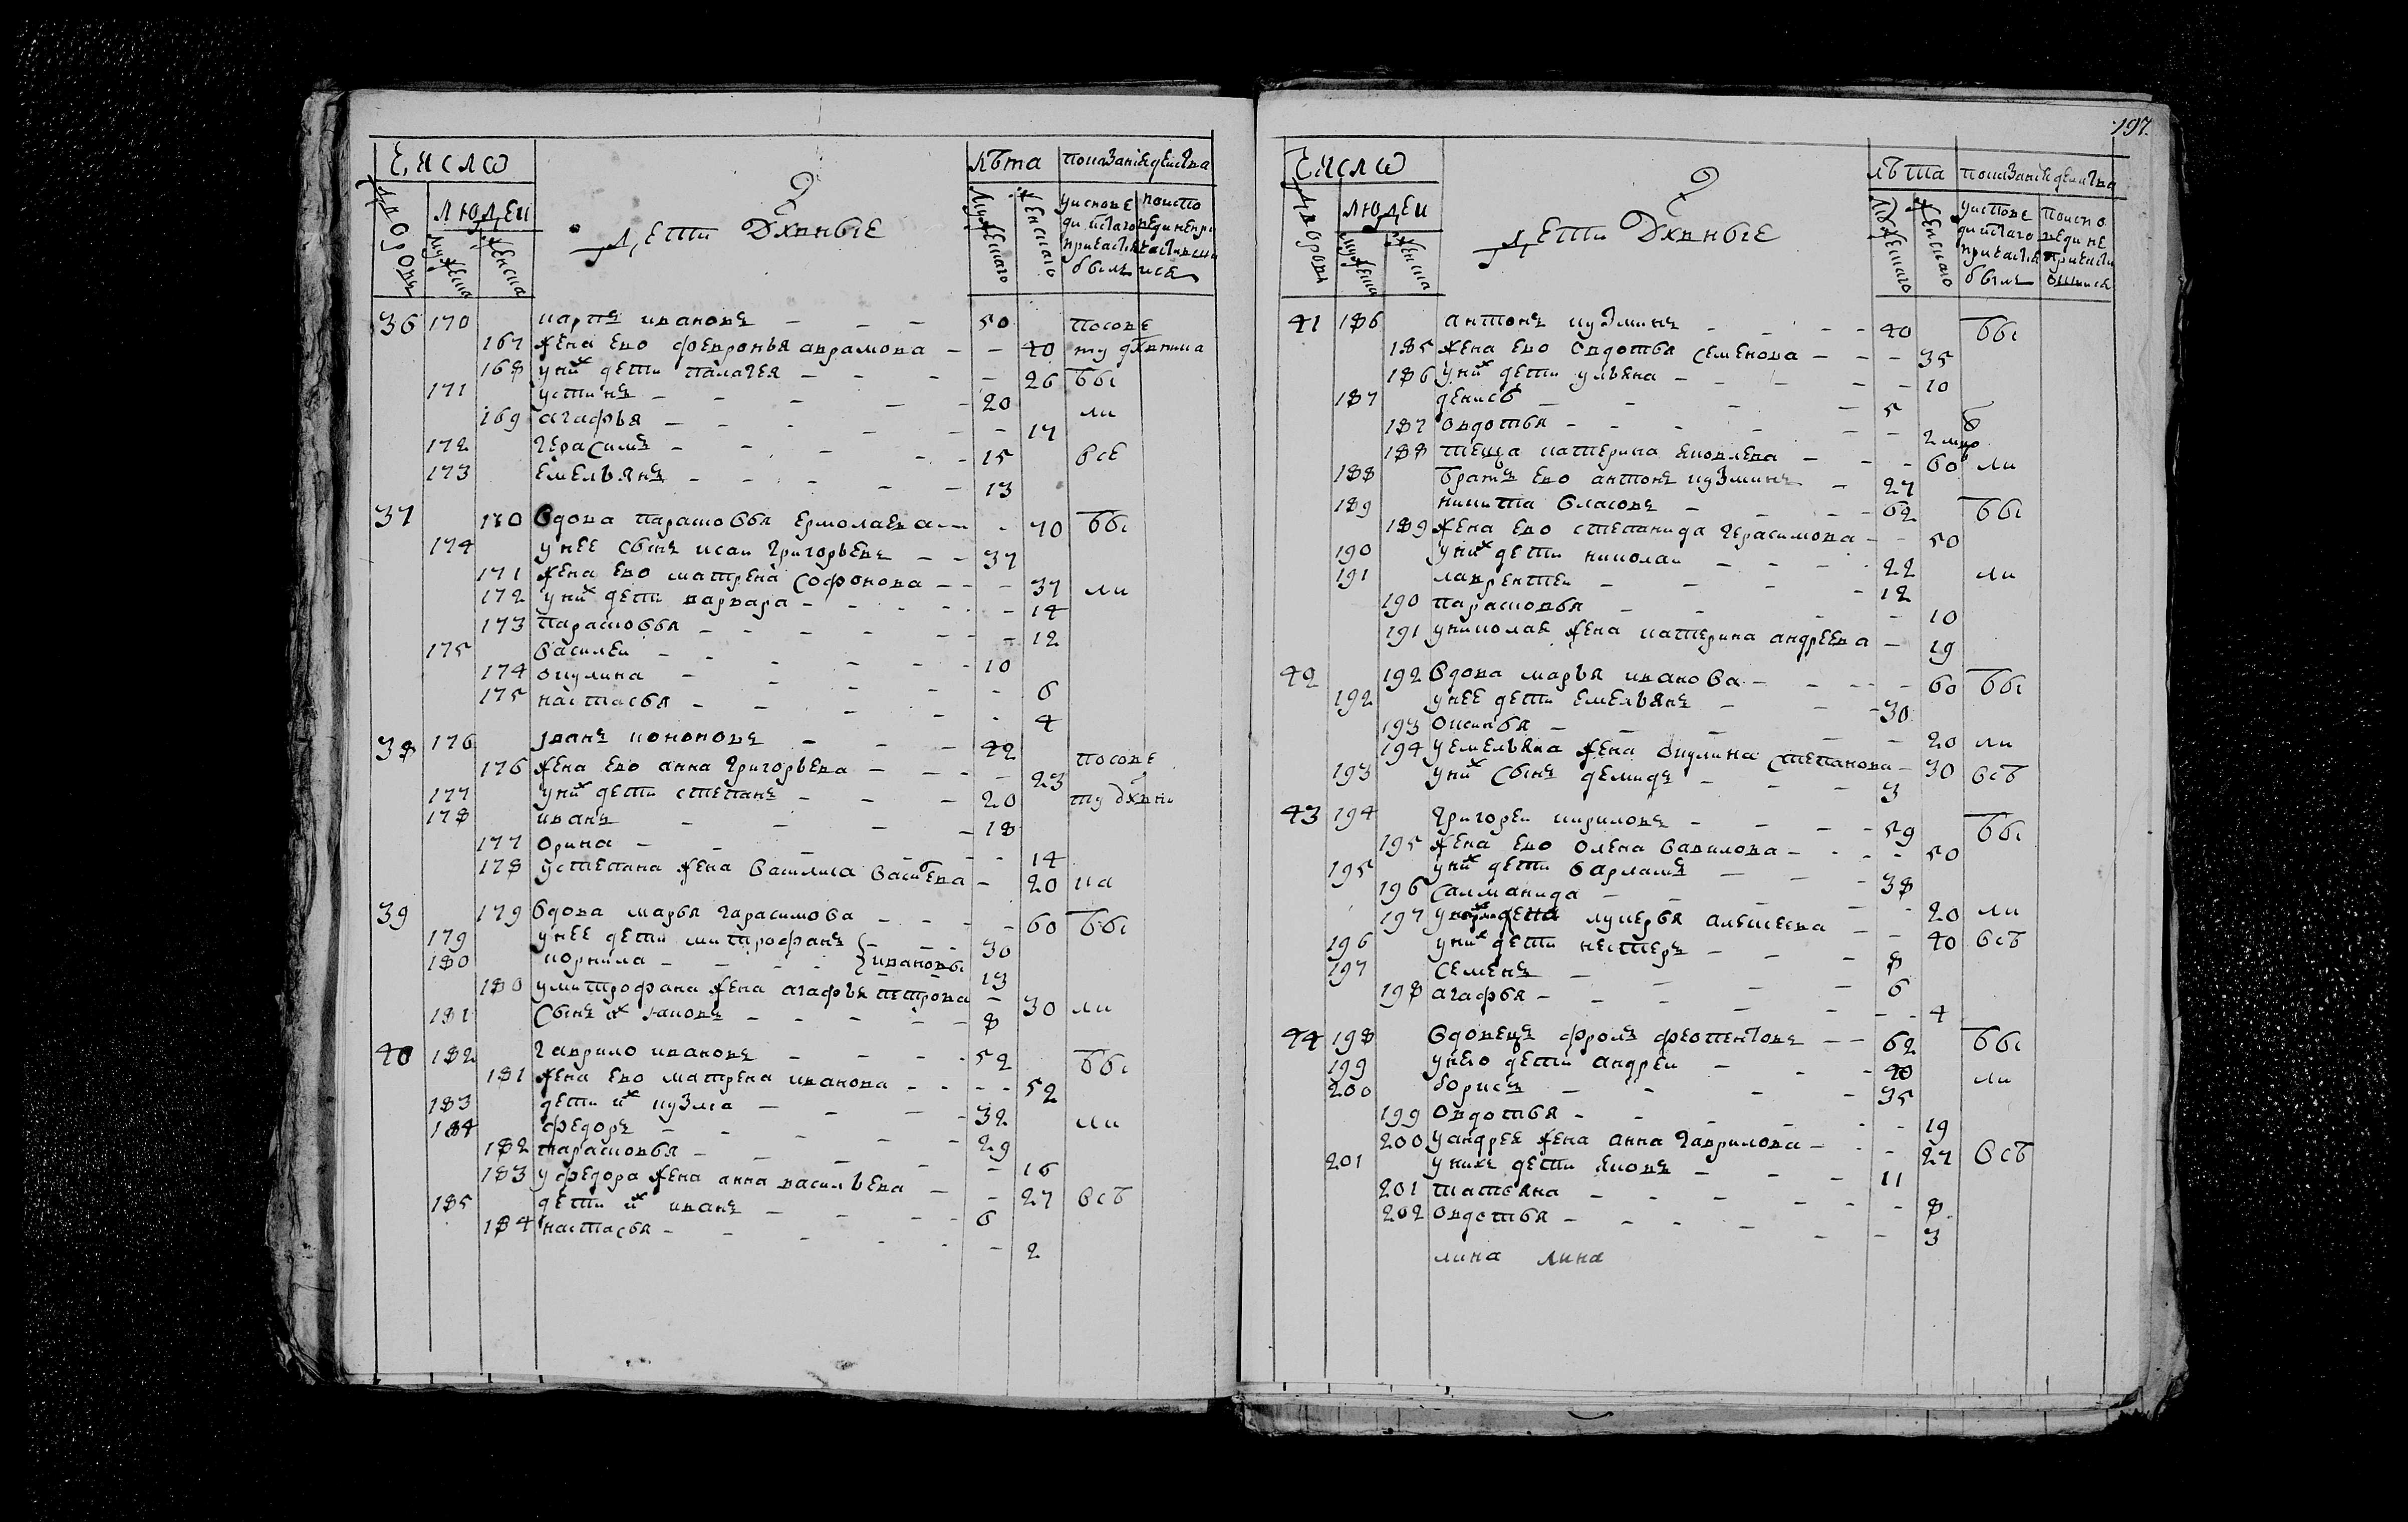 Число
лѣта показаніе действа
Дворовъ
людей
мужеска
женска
Дети Дхвныѣ
мужескаго
женскаго
у исповеди и с̃таго причастія были
по исповеди не причастившися
36 170 карпъ ивановъ 50 по сове
167 жена ево февронья аврамова 40 ту дхвника
168 у них дети палагея 26 бы
171 устинъ 20
169 агафья 17 ли
172 герасимъ 15 все
173 емельянъ 13
37 170 вдова парасковья ермолаева 70 бы
174 у нее сынъ исаи григорьевъ 37
171 жена ево матрена софонова 37 ли
172 у них дети варвара 14
173 парасковья 12
175 василеи 10
174 окулина 6
175 настасья 4
38 176 іванъ кононовъ 42 по сове
176 жена ево анна григорьева 23
177 у них дети степанъ 20 ту дхвни
178 иванъ 18
177 орина 14
178 у степана жена василиса васиʌева 20 ка
39 179 вдова марья гарасимова 60 бы
179 у нее дети митрофанъ 30
180 корнила ивановы 13
180 у митрофана жена агафья петрова 30 ли
181 сынъ их яковъ 8
40 182 гаврило ивановъ 52 бы
181 жена ево матрена иванова 52
183 дети их кузма 32
184 федоръ 29 ли
182 парасковья 16
183 у федора жена анна васильева 27 всѣ
185 дети их иванъ 6
184 настасья 2
197
Число
лѣта показаніе действа
Дворовъ
людей
мужеска
женска
Дети Дхвныѣ
мужескаго
женскаго
у исповеди и с̃таго причастія были
по исповеди не причастившися
41 186 антонъ кузминъ 40 бы
185 жена ево овдотья семенова 35
186 у них дети ульяна 10
187 денисъ 5
187 овдотья 2
188 теща катерина яковлева 60 ли
188 братъ ево антонъ кузминъ 27
189 никита власовъ 62 бы
189 жена ево степанида герасимова 50
190 у них дети николаи 22
191 лаврентеи 12 ли
190 парасковья 10
191 у николая жена катерина андреева 19
42 192 вдова марья иванова 60 бы
192 у нее дети емельянъ 30
193 оксинья 20 ли
194 у емельяна жена окулина степанова 30 всѣ
193 у них сынъ демидъ 3
43 194 григореи кириловъ 59 бы
195 жена ево олена вавилова 50
195 у них дети варламъ 38
196 саломанида 20 ли
197 жена лукерья алексеева 40 всѣ
196 у них дети нестеръ 8
197 семенъ 6
198 агафья 4
44 198 вдовецъ фролъ феоктистовъ 62 бы
199 у нево дети андреи 40 ли
200 борисъ 35
199 овдотья 19
200 у андрея жена анна гаврилова 27 всѣ
201 у нихъ дети яковъ 11
201 татьяна 8
202 овдотья 3